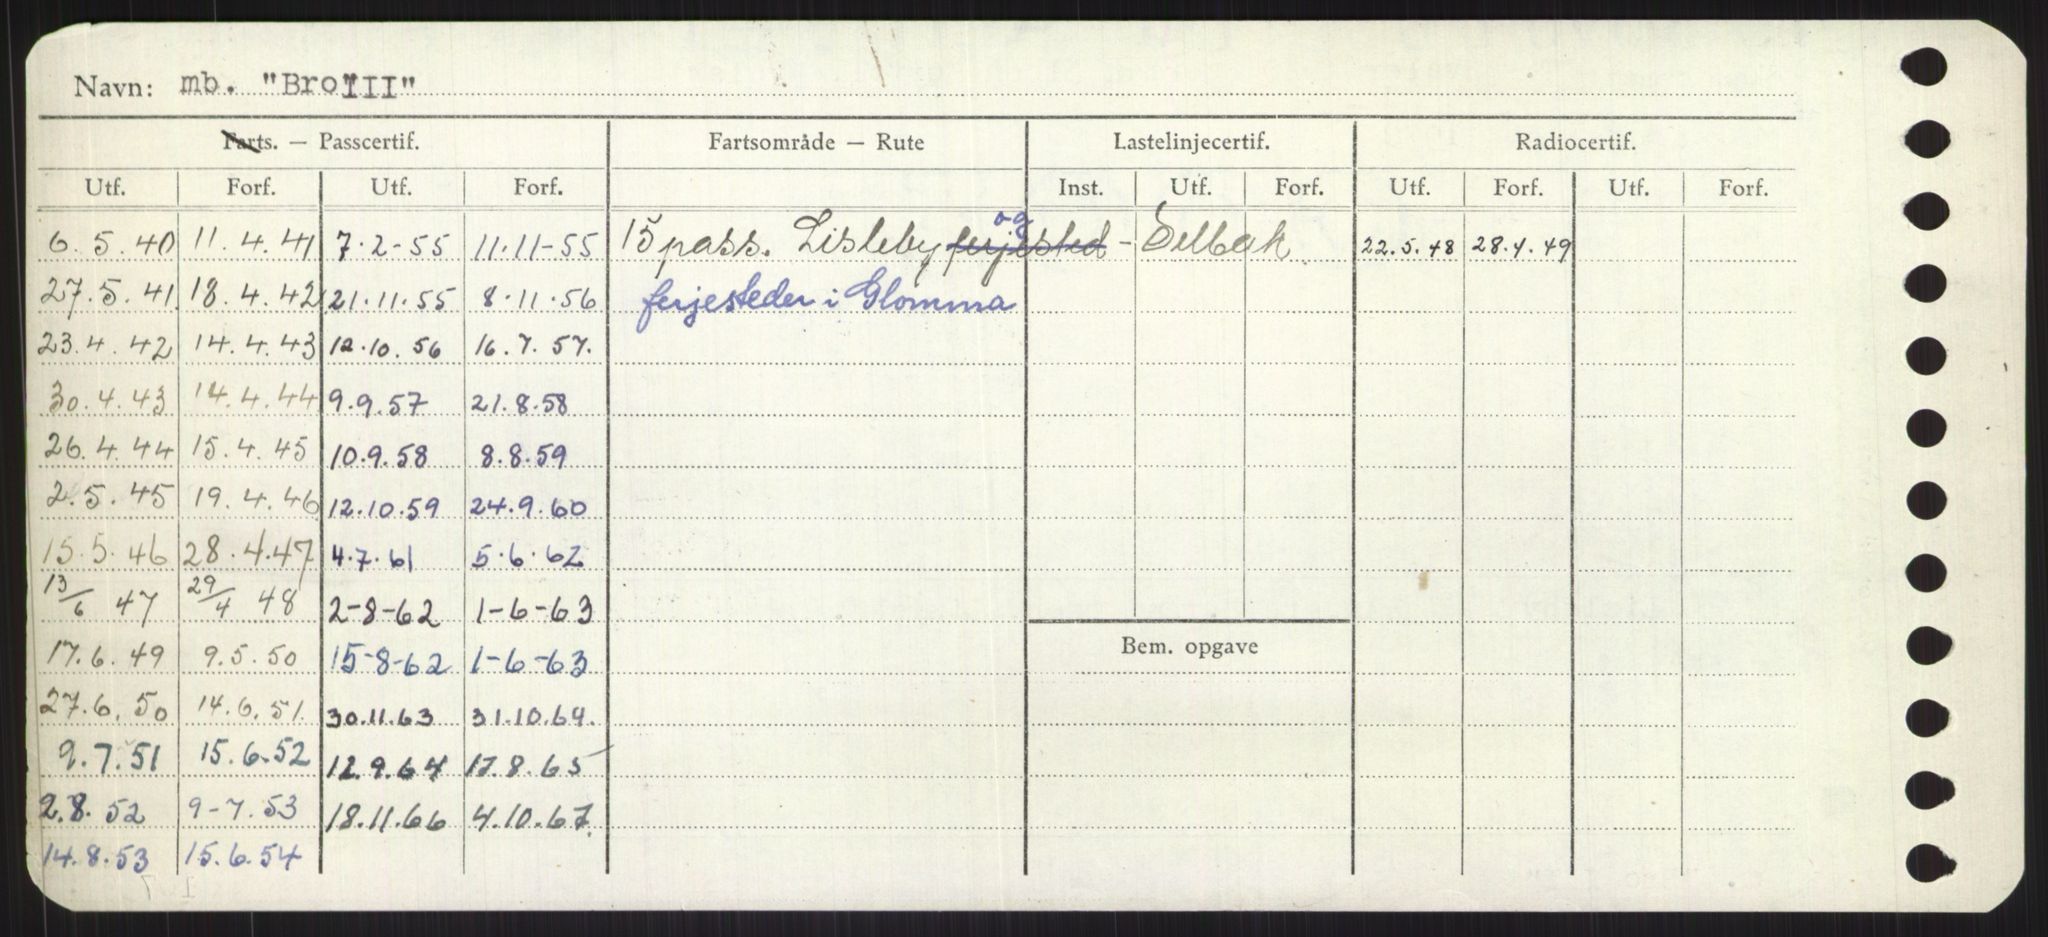 Navn: mb. "Bro III"
Farts. — Passcertif. Fartsområde — Rute Lastelinjecertif. Radiocertif.
Utf. Forf. Utf. Forf. Inst. Utf. Forf. Utf. Forf. Utf. Forf.
6.5.40 11.4.41 7-2-55 11.11-55 15 pass. Lisleby ferjested og - Selbak 22.5.48 28.4.49
27.5.41 18.4.42 21.11.55 8.11.56 ferjesteder i Glomma
23.4.42 14.4.43 12.10.56 16.7.57.
30.4.43 14.4.44 9.9.57 21.8.58
26.4.44 15.4.45 10.9.58 8.8.59
2.5.45 19.4.46 12.10.59 24.9.60
15.5.46 28.4.47 4.7.61 5.6.62
13/6 47 29/4 48 2-8-62 1-6-63
17.6.49 9.5.50 15-8-62 1-6-63 Bem. opgave
27.6.50 14.6.51. 30.11.63 31.10.64.
9.7.51 15.6.52 12.9.64 17.8.65
2.8.52 9-7.53 18.11.66 4.10.67.
14.8.53 15.6.54